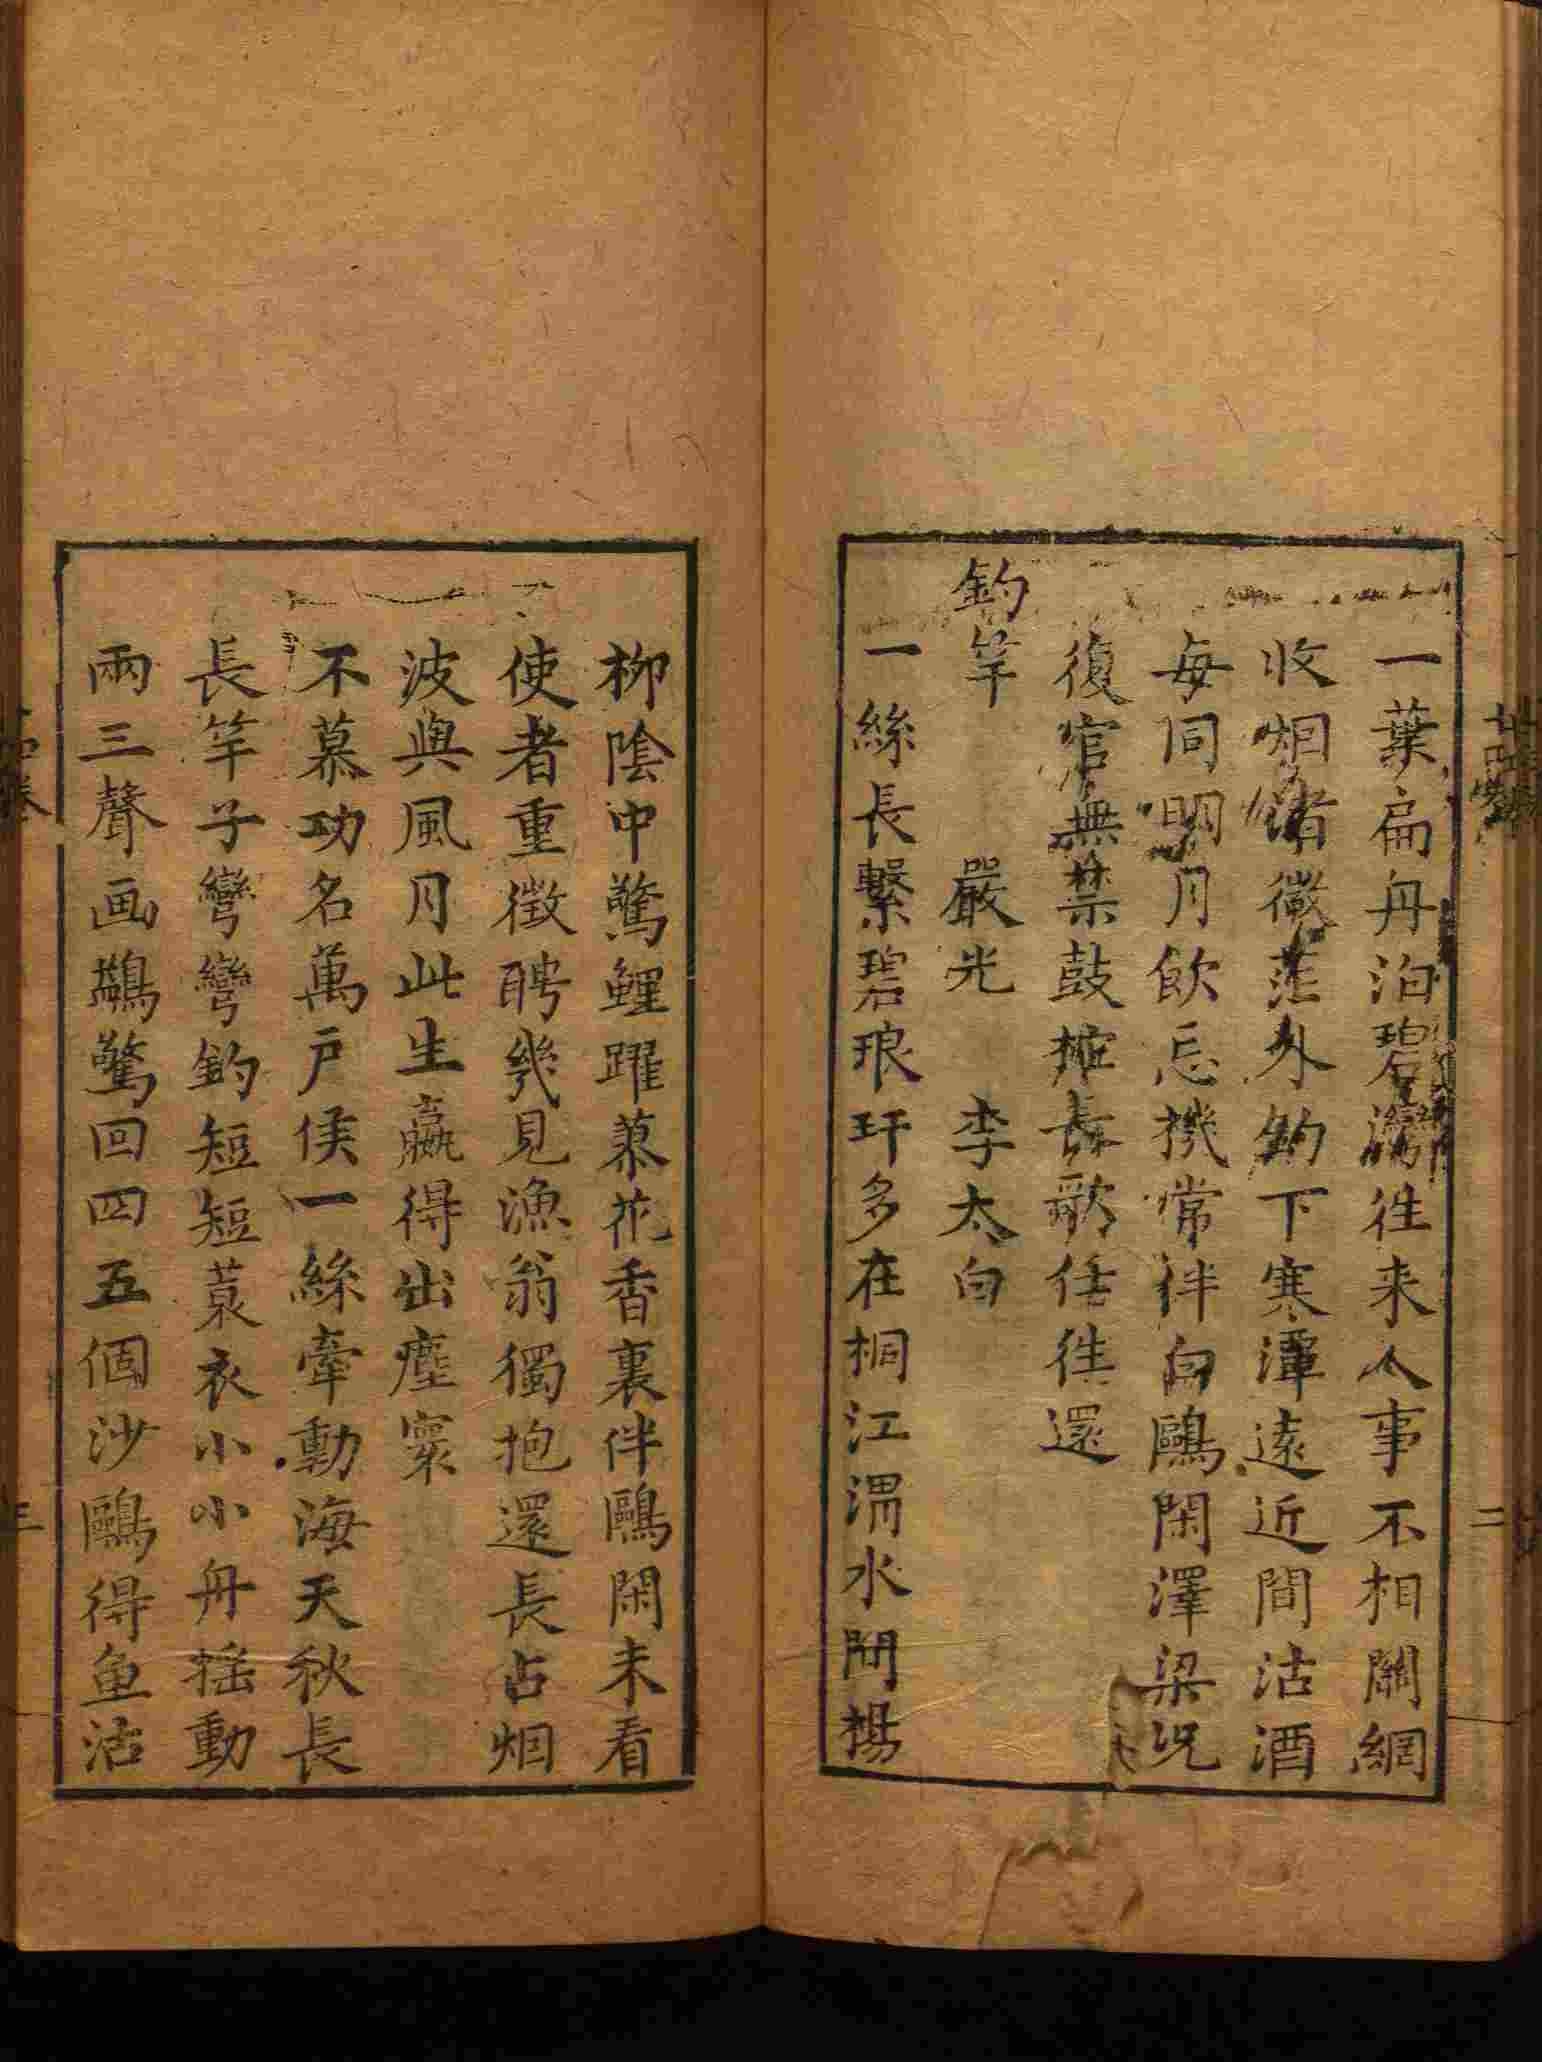 一葉扁舟泊碧灣徃来人事不相關網
收烟渚微茫外釣下寒潭遠近間沽酒
每同明月飲忘機常伴白鷗閑澤梁况
復官無禁鼓枻長歌任徃還
釣竿　嚴光　李太白
一絲長繫碧琅玕多在桐江渭水間揚
柳陰中驚鯉躍蓼花香裏伴鷗閑未看
使者重徵聘幾見漁翁獨抱還長占烟
波與風月此生嬴得出塵寰
不慕功名萬户侯一絲牽動海天秋長
長竿子彎彎釣短短蓑衣小小舟揺動
兩三聲画鷁驚回四五個沙鷗得魚沽